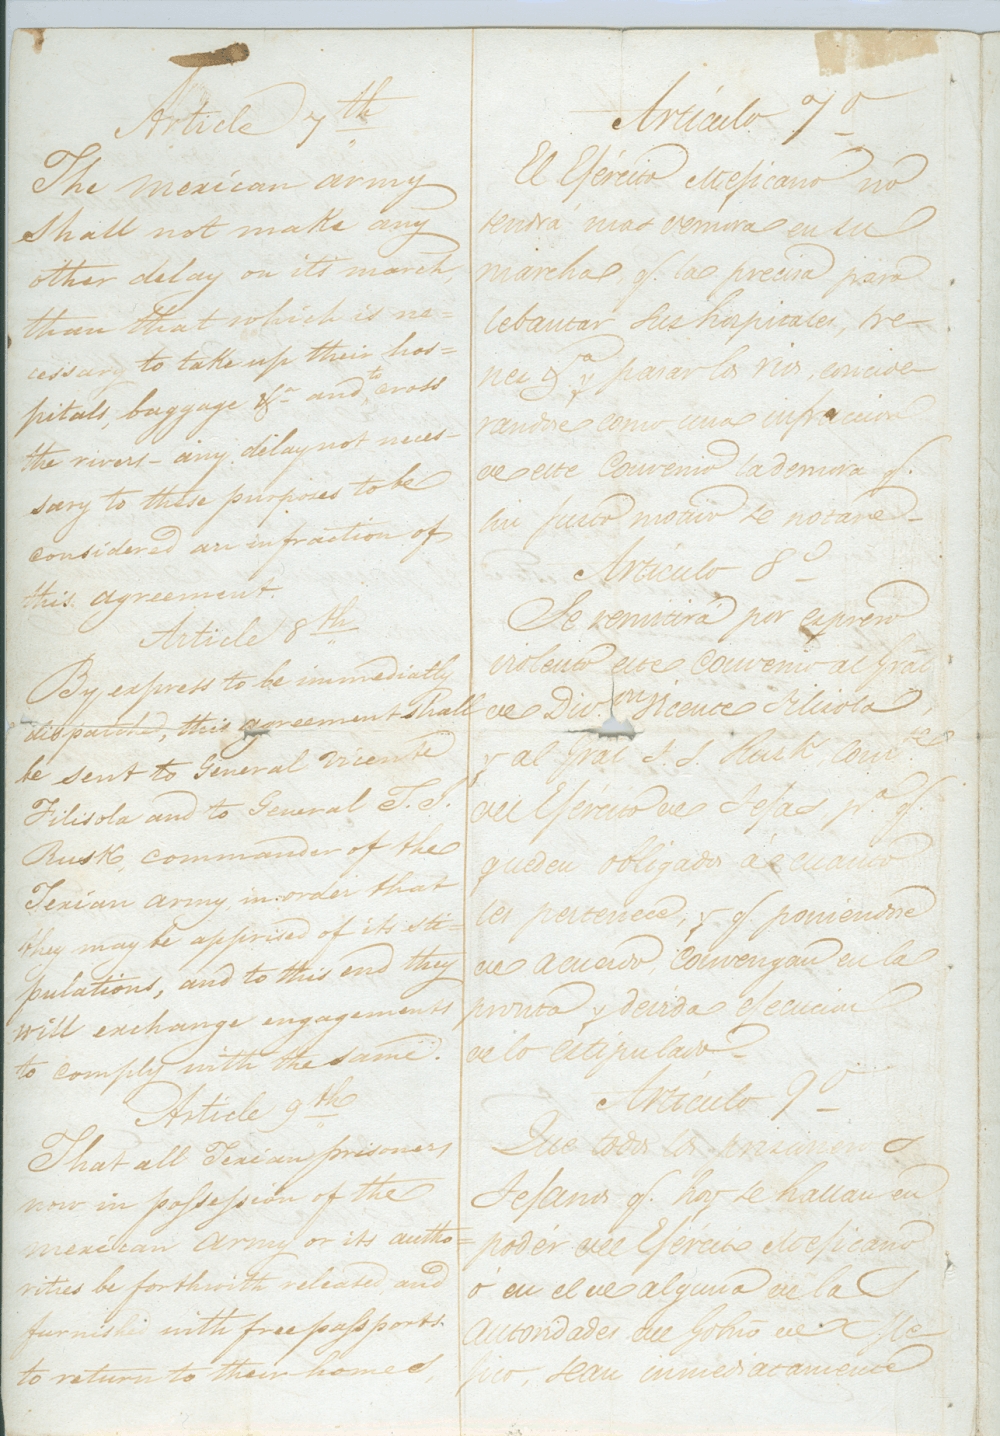 Article 7th
The mexican army
shall not make any
other delay on its march,
than that which is ne=
cessary to take up their hos=
pitals, baggage &ca and to cross
the rivers - any delay not neces-
sary to these purposes to be
considered an infraction of
this agreement.
Article 8th
By express to be immediatly
dispatched, this agreement shall
be sent to General Vicente
Filisola and to General T. J.
Rusk, commander of the
Texian army, in order that
they may be apprised of its sti=
pulations, and to this end they
will exchange engagements
to comply with the same.
Article 9th
That all Texian prisoners
now in possession of the
mexican army or its autho=
rities be forthwith released, and
furnished with free passports
to return to their homes,
Artículo 7o
El Ejército Mejicano no
tendrá mas demora en su
marcha, q. la precisa para
lebantar sus hospitales, tre-
nes &a y pasar los rios, concide-
randose como una infraccion
de este Convenio la demora q.
sin justo motivo se notare -
Artículo 8o
Se remitirá por expreso
violento este Convenio al Gral
de Divon Vicente Filisola,
y al Gral T. J. Rusk, Comte
del Ejército de Tejas pa q.
queden obligados á cuanto
les pertenece, y q. poniendose
de acuerdo, convengan en la
pronta y devida ejecucion
de lo estipulado -
Artículo 9o
Que todos los prisioneros
Tejanos q. hoy se hallan en
podér del Ejército Mejicano
ó en el de alguna de las
Autoridades del Gobno de Me-
jico, sean inmediatamente